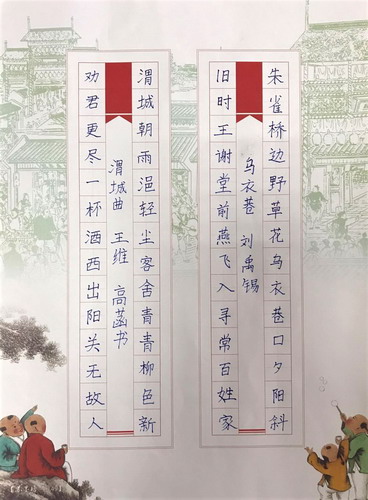 朱雀桥边野草花乌衣巷口夕阳斜
乌衣巷 刘禹锡
旧时王谢堂前燕飞入寻常百姓家
渭城朝雨浥轻尘客舍青青柳色新
渭城曲 王维 高菡书
劝君更尽一杯酒西出阳关无故人